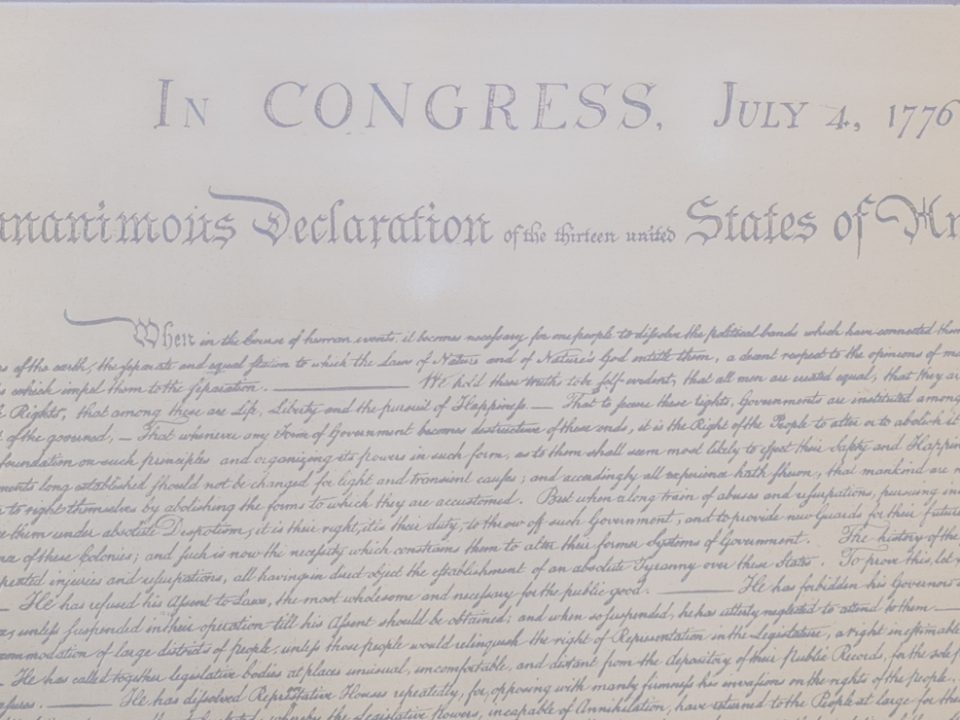 IN CONGRESS, JULY 4, 1776
unanimous Declaration of the thirteen united States of Am
When in the Course of human events, it becomes necessary for one people to dissolve the political bands which have connected them
of the earth, the separate and equal station to which the Laws of Nature and of Nature's God entitle them, a decent respect to the opinions of
which impel them to the separation. ——— We hold these truths to be self-evident, that all men are created equal, that they are
Rights, that among these are Life, Liberty and the pursuit of Happiness. — That to secure these rights, Governments are instituted among
of the governed, — That whenever any Form of Government becomes destructive of these ends, it is the Right of the People to alter or to abolish it
foundation on such principles and organizing its powers in such form, as to them shall seem most likely to effect their Safety and Happin
long established should not be changed for light and transient causes; and accordingly all experience hath shewn, that mankind are
to right themselves by abolishing the forms to which they are accustomed. But when a long train of abuses and usurpations, pursuing
them under absolute Despotism, it is their right, it is their duty, to throw off such Government, and to provide new Guards for their future
of these Colonies; and such is now the necessity which constrains them to alter their former Systems of Government. The history of the
repeated injuries and usurpations, all having in direct object the establishment of an absolute Tyranny over these States. To prove this, let
— He has refused his Assent to Laws, the most wholesome and necessary for the public good. ——— He has forbidden his Governors
unless suspended in their operation till his Assent should be obtained; and when so suspended, he has utterly neglected to attend to them. —
of large districts of people, unless those people would relinquish the right of Representation in the Legislature, a right inestimable
— He has called together legislative bodies at places unusual, uncomfortable, and distant from the depository of their Public Records, for the sole
——— He has dissolved Representative Houses repeatedly, for opposing with manly firmness his invasions on the rights of the people.
whereby the Legislative Powers, incapable of Annihilation, have returned to the People at large for